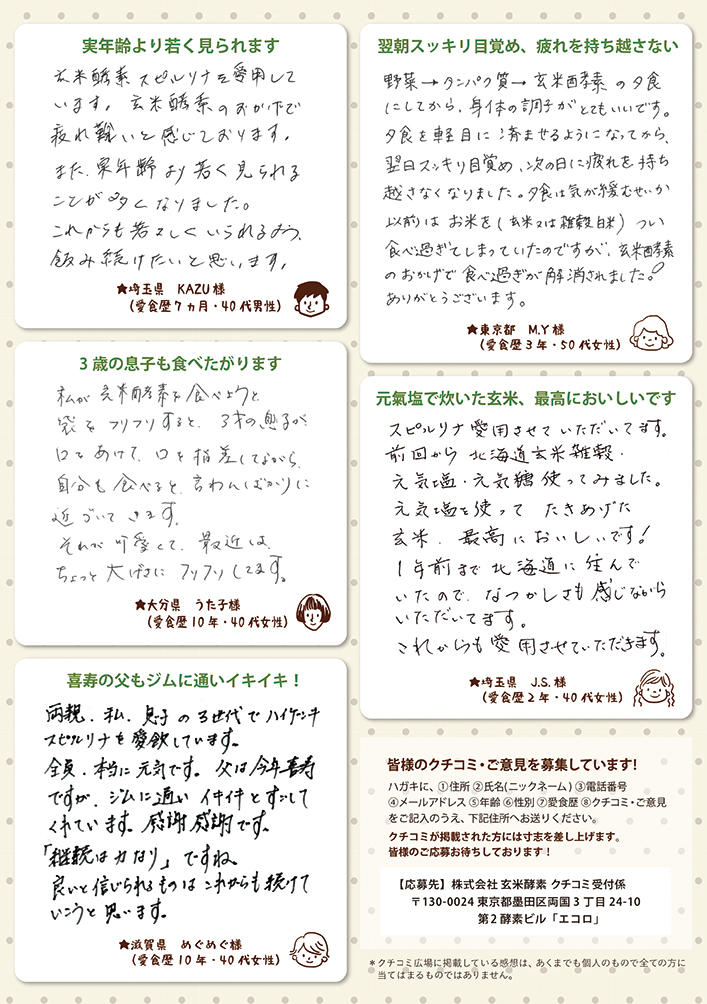 実年齢より若く見られます
玄米酵素スピルリナを愛用して
います。玄米酵素のおかげで
疲れ難いと感じております。
また、実年齢より若く見られる
ことが多くなりました。
これからも若々しくいられるよう、
飲み続けたいと思います。
★埼玉県 KAZU様
（愛食歴7ヵ月・40代男性）
3歳の息子も食べたがります
私が玄米酵素を食べようと
袋をフリフリすると、3才の息子が
口をあけて、口を指差しながら、
自分も食べると、言わんばかりに
近づいてきます。
それが可愛くて、最近は、
ちょっと大げさにフリフリしてます。
★大分県 うた子様
（愛食歴10年・40代女性）
喜寿の父もジムに通いイキイキ！
両親、私、息子の3世代でハイゲンキ
スピルリナを愛飲しています。
全員、本当に元気です。父は今年喜寿
ですが、ジムに通いイキイキとすごして
くれています。感謝感謝です。
「継続は力なり」ですね。
良いと信じられるものはこれからも続けて
いこうと思います。
★滋賀県 めぐめぐ様
（愛食歴10年・40代女性）
翌朝スッキリ目覚め、疲れを持ち越さない
野菜→タンパク質→玄米酵素の夕食
にしてから、身体の調子がとてもいいです。
夕食を軽目に済ませるようになってから、
翌日スッキリ目覚め、次の日に疲れを持ち
越さなくなりました。夕食は気が緩むせいか
以前はお米を（玄米又は雑穀白米）つい
食べ過ぎてしまっていたのですが、玄米酵素
のおかげで食べ過ぎが解消されました。
ありがとうございます。
★東京都 M.Y様
（愛食歴3年・50代女性）
元氣塩で炊いた玄米、最高においしいです
スピルリナ愛用させていただいてます。
前回から北海道玄米雑穀・
元気塩・元気糖使ってみました。
元気塩を使ってたきあげた
玄米、最高においしいです！
1年前まで北海道に住んで
いたので、なつかしさも感じながら
いただいてます。
これからも愛用させていただきます。
★埼玉県 J.S.様
（愛食歴2年・40代女性）
皆様のクチコミ・ご意見を募集しています！
ハガキに、①住所 ②氏名(ニックネーム) ③電話番号
④メールアドレス ⑤年齢 ⑥性別 ⑦愛食歴 ⑧クチコミ・ご意見
をご記入のうえ、下記住所へお送りください。
クチコミが掲載された方には寸志を差し上げます。
皆様のご応募お待ちしております！
【応募先】株式会社 玄米酵素 クチコミ受付係
〒130-0024 東京都墨田区両国3丁目24-10
第2酵素ビル「エコロ」
＊クチコミ広場に掲載している感想は、あくまでも個人のもので全ての方に
当てはまるものではありません。